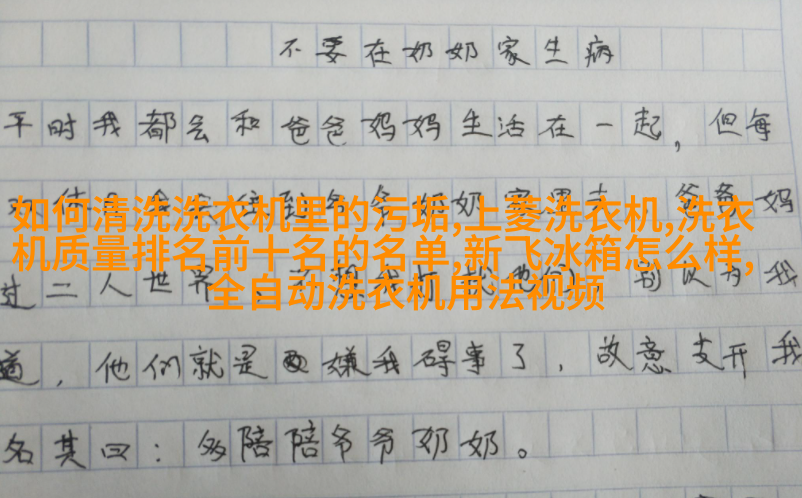 不要在奶奶家生病
平时我都会和爸爸妈妈生活在一起，但每
如何清洗洗衣机里的污垢,上菱洗衣机,洗衣
机质量排名前十名的名单,新飞冰箱怎么样,
全自动洗衣机用法视频
爸爸妈
过二人世界
别以为我
道，他们就是嫌我碍事了，故意支开我
名其曰：多陪陪爷爷奶奶。